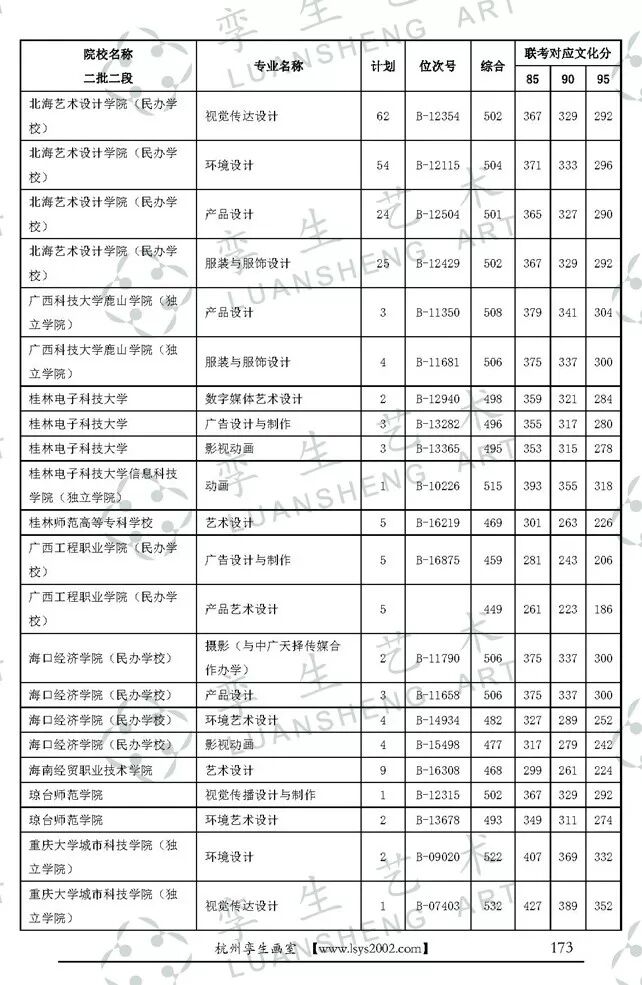 孪生艺术
LUANSHENG ART
院校名称 二批二段 专业名称 计划 位次号 综合 联考对应文化分
85 90 95
北海艺术设计学院（民办学校） 视觉传达设计 62 B-12354 502 367 329 292
北海艺术设计学院（民办学校） 环境设计 54 B-12115 504 371 333 296
北海艺术设计学院（民办学校） 产品设计 24 B-12504 501 365 327 290
北海艺术设计学院（民办学校） 服装与服饰设计 25 B-12429 502 367 329 292
广西科技大学鹿山学院（独立学院） 产品设计 3 B-11350 508 379 341 304
广西科技大学鹿山学院（独立学院） 服装与服饰设计 4 B-11681 506 375 337 300
桂林电子科技大学 数字媒体艺术设计 2 B-12940 498 359 321 284
桂林电子科技大学 广告设计与制作 3 B-13282 496 355 317 280
桂林电子科技大学 影视动画 3 B-13365 495 353 315 278
桂林电子科技大学信息科技学院（独立学院） 动画 1 B-10226 515 393 355 318
桂林师范高等专科学校 艺术设计 5 B-16219 469 301 263 226
广西工程职业学院（民办学校） 广告设计与制作 5 B-16875 459 281 243 206
广西工程职业学院（民办学校） 产品艺术设计 5 449 261 223 186
海口经济学院（民办学校） 摄影（与中广天择传媒合作办学） 2 B-11790 506 375 337 300
海口经济学院（民办学校） 产品设计 3 B-11658 506 375 337 300
海口经济学院（民办学校） 环境艺术设计 4 B-14934 482 327 289 252
海口经济学院（民办学校） 影视动画 4 B-15498 477 317 279 242
海南经贸职业技术学院 艺术设计 9 B-16308 468 299 261 224
琼台师范学院 视觉传播设计与制作 1 B-12315 502 367 329 292
琼台师范学院 环境艺术设计 2 B-13678 493 349 311 274
重庆大学城市科技学院（独立学院） 环境设计 2 B-09020 522 407 369 332
重庆大学城市科技学院（独立学院） 视觉传达设计 1 B-07403 532 427 389 352
杭州孪生画室 【www.lsys2002.com】 173